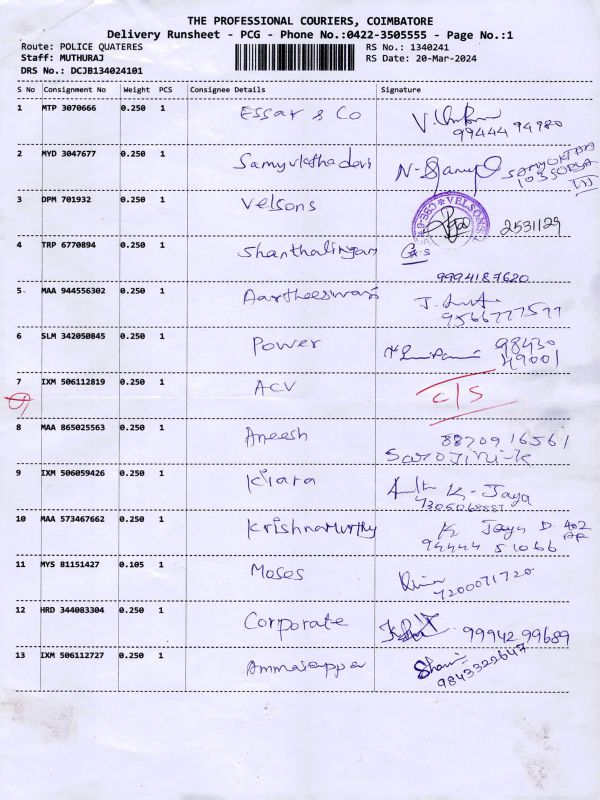 THE PROFESSIONAL COURIERS, COIMBATORE
Delivery Runsheet - PCG - Phone No.:0422-3505555 - Page No.:1
Route: POLICE QUATERES RS No.: 1340241
Staff: MUTHURAJ RS Date: 20-Mar-2024
DRS No.: DCJB134024101
S No Consignment No Weight PCS Consignee Details Signature
1 MTP 3070666 0.250 1 Essar & Co
99444 94980
2 MYD 3047677 0.250 1 Samyukthadevi
3 DPM 701932 0.250 1 Velsons VELSONS 2531129
4 TRP 6770894 0.250 1 Shanthalingam
9994187620
5 MAA 944556302 0.250 1 Aartheeswari
9566777577
6 SLM 342050845 0.250 1 Power 98430
49001
7 IXM 506112819 0.250 1 ACV C/S
8 MAA 865025563 0.250 1 Aneesh 8870916561
Sarojini-k
9 IXM 506059426 0.250 1 Kiara K-Jaya
10 MAA 573467662 0.250 1 Krishnamurthy K Jaya D 402
94444 51066
11 MYS 81151427 0.105 1 Moses
7200071720
12 HRD 344083304 0.250 1 Corporate 99942 99689
13 IXM 506112727 0.250 1 Ammaiappar
9843322647